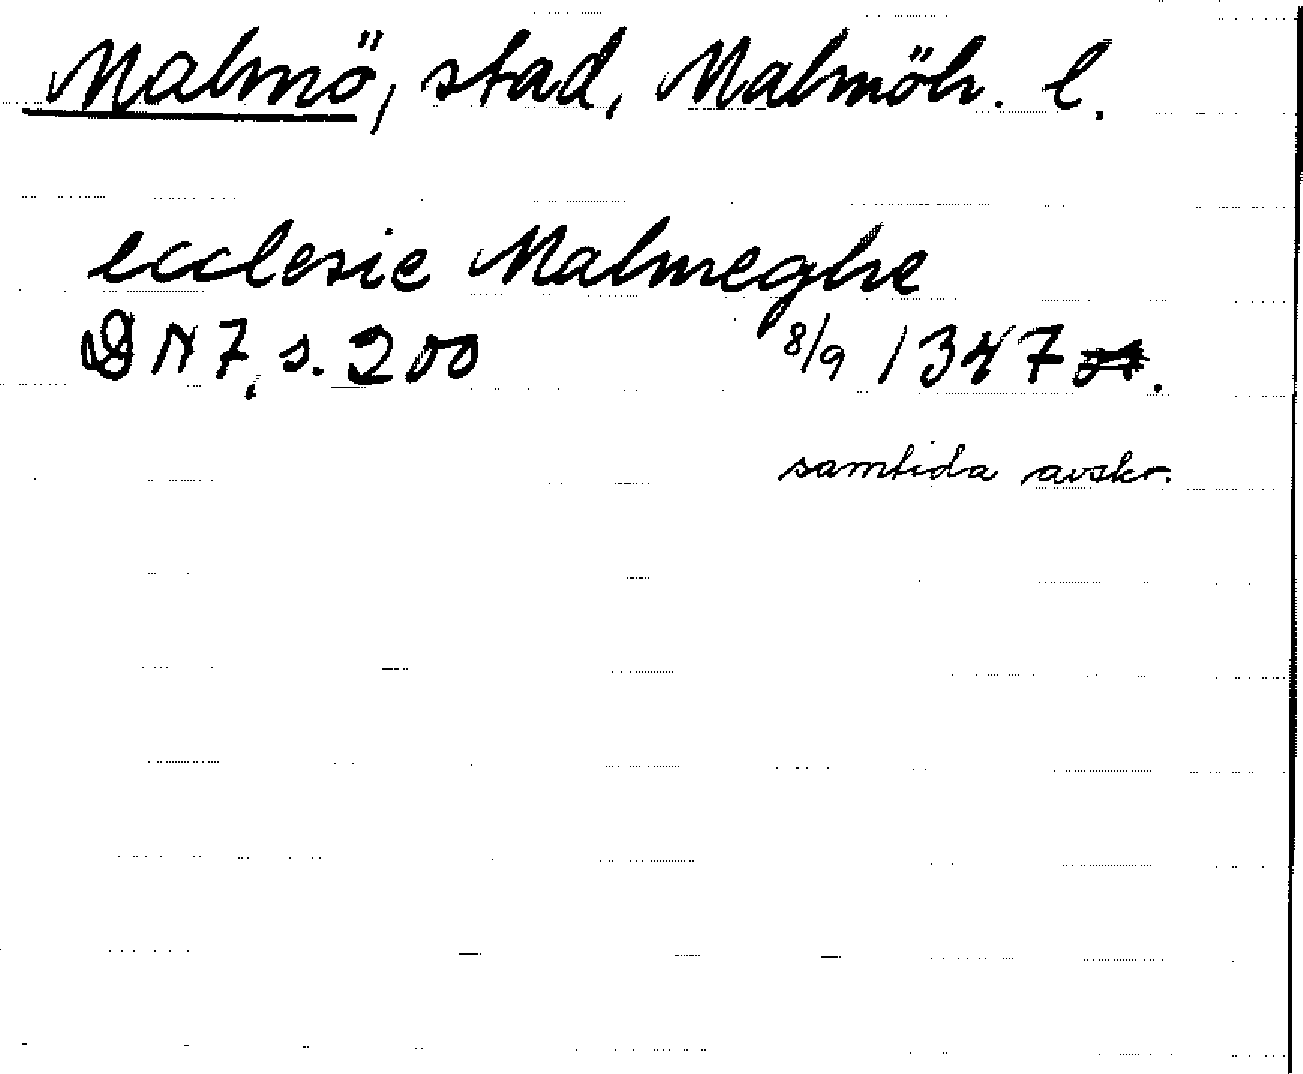 Malmö, stad, Malmöh. l.
ecclesie Malmeghe
DN 7, s. 200 8/9 1347.
samtida avskr.